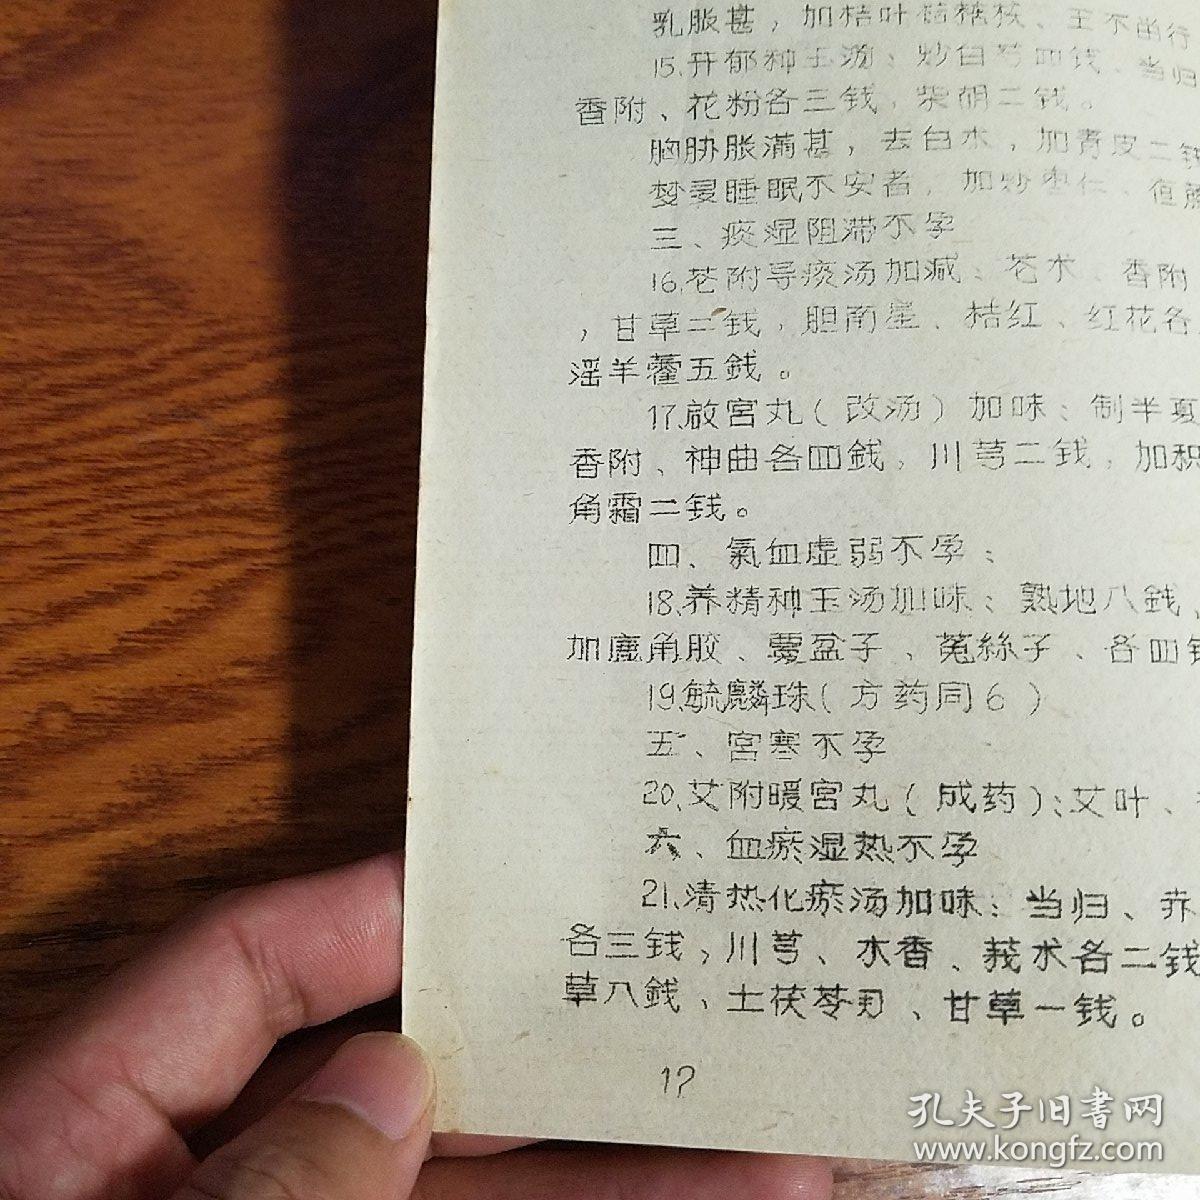 乳胀甚，加桔叶、桔核、王不留行
15.开郁种玉汤：炒白芍四钱、当归
香附、花粉各三钱，柴胡二钱。
胸胁胀满甚，去白术，加青皮二钱
梦多睡眠不安者，加炒枣仁
三、痰湿阻滞不孕
16.苍附导痰汤加减：苍术、香附
，甘草二钱，胆南星、桔红、红花各
淫羊藿五銭。
17.啟宫丸（改汤）加味：制半夏
香附、神曲各四銭，川芎二钱，加积
角霜二钱。
四、氣血虚弱不孕：
18.养精种玉汤加味：熟地八銭、
加鹿角胶、覆盆子、菟絲子、各四钱
19.毓麟珠（方药同6）
五、宫寒不孕
20.艾附暖宫丸（成药）：艾叶、
六、血瘀湿热不孕
21.清热化瘀汤加味：当归、赤
各三钱，川芎、木香、莪术各二钱
草八銭、土茯苓、甘草一钱。
17
孔夫子旧書网
www.kongfz.com